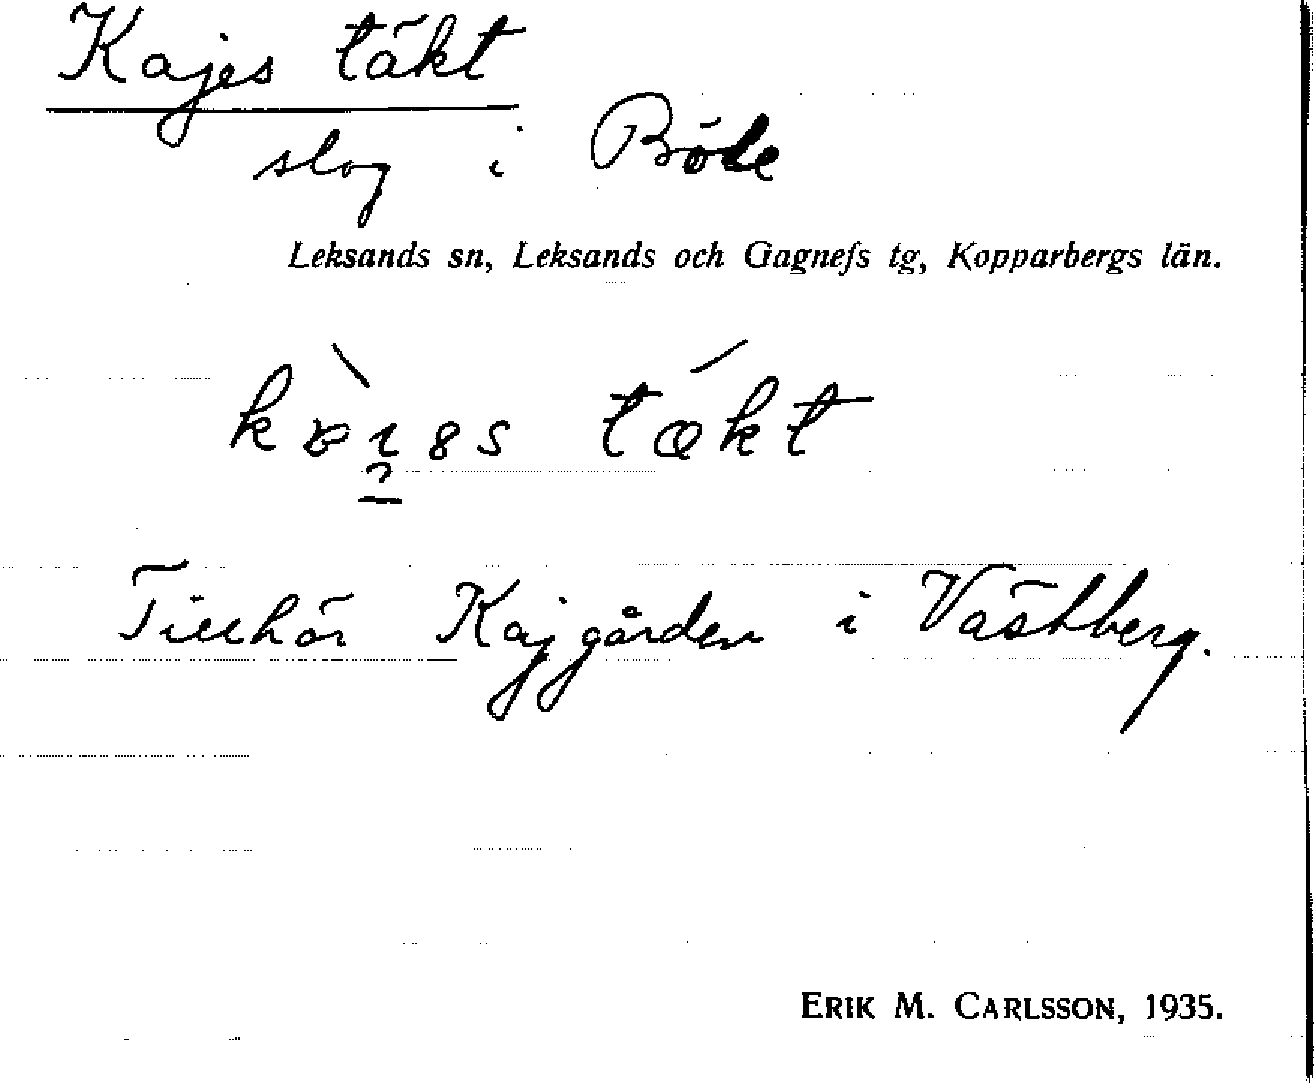 Kajes täkt
slog i Böle
Leksands sn, Leksands och Gagnefs tg, Kopparbergs län.
täkt
Tillhör Kajgården i Västberg.
ERIK M. CARLSSON, 1935.